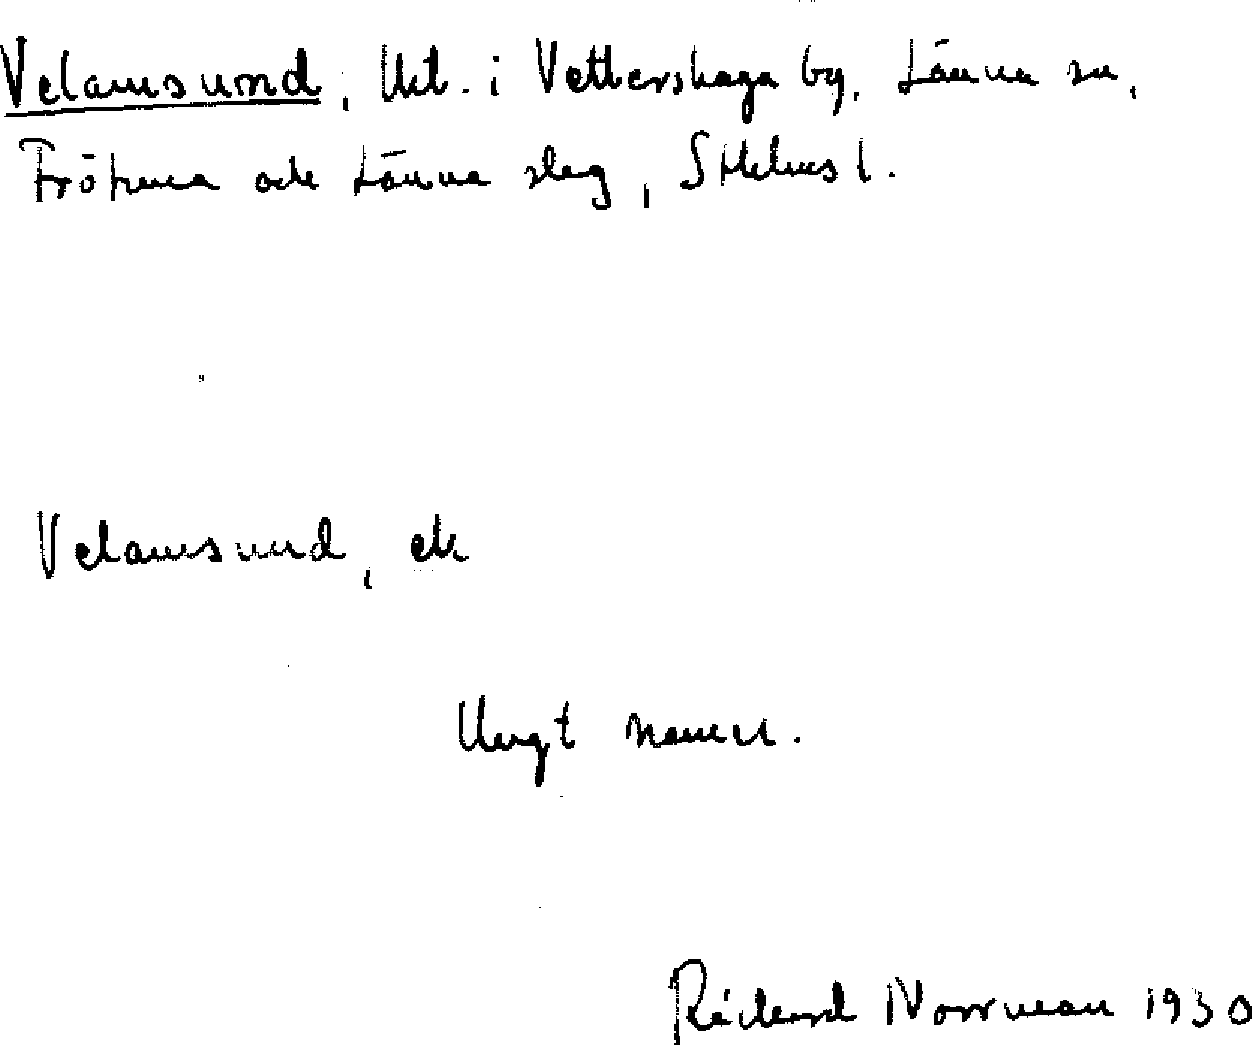 Velamsund, lht. i Vettershaga by, Länna sn,
Frötuna och Länna slag, Sthlms l.
Velamsund, ek
Ungt namn.
Rickard Norrman 1930